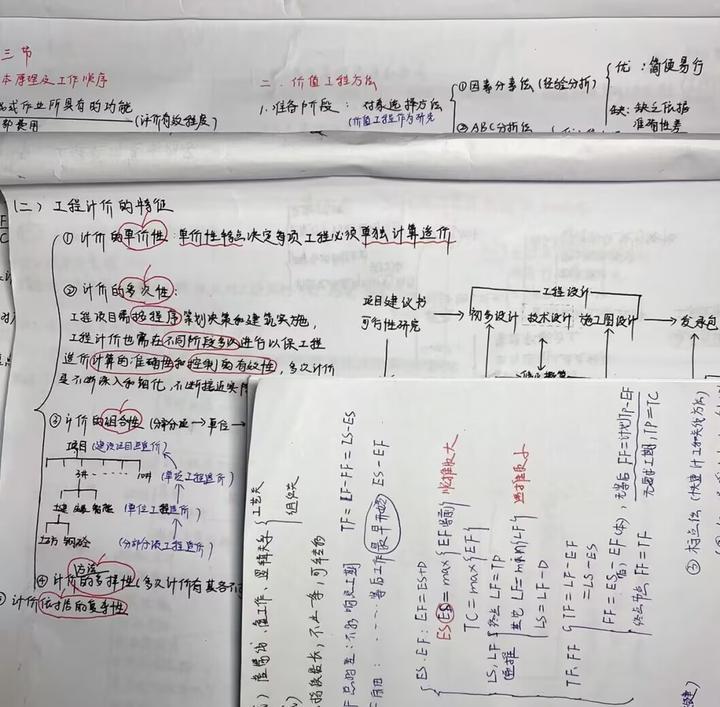 三 节
本原理及工作顺序
或作业所具有的功能
费用
(评价有效程度)
二. 价值工程方法
1. 准备阶段: 对象选择方法
(价值工程作为研究
①因素分素法 (经验分析)
优: 简便易行
缺: 缺乏依据
准确性差
②ABC分析法
(二) 工程计价的特征
① 计价的单价性: 单价性特点决定每项工程必须单独计算造价
② 计价的多次性:
工程项目需按程序策划决策和建筑实施,
工程计价也需在不同阶段多次进行以保工程
造价计算的准确性和控制的有效性, 多次计价
是不断深入和细化, 不断接近实际
项目建议书
可行性研究
工程设计
初步设计
技术设计
施工图设计
发承包
③ 计价的组合性 (分部分项→单位→
项目 (建设项目总造价)
(单项工程造价)
(单位工程造价)
土方 钢砼
(分部分项工程造价)
方法
④ 计价的多样性 (多次计价有其各不
计价依据的复杂性
工艺关
组织关
TF = LF-FF = LS-ES
最早开始 ES-EF
ES.EF: EF=ES+D
ES=max{EF紧前} 顺推取大
TC=max{EF}
LS.LF 终点 LF=TP
逆推 其它 LF=min{LF} 逆推取小
LS=LF-D
TF.FF
TF=LF-EF
=LS-ES
FF=ES-EF(本), 无紧后 FF=计划TP-EF
终点节点 FF=TF
无要求工期, TP=TC
③ 标号法 (快速计工和关键方法)